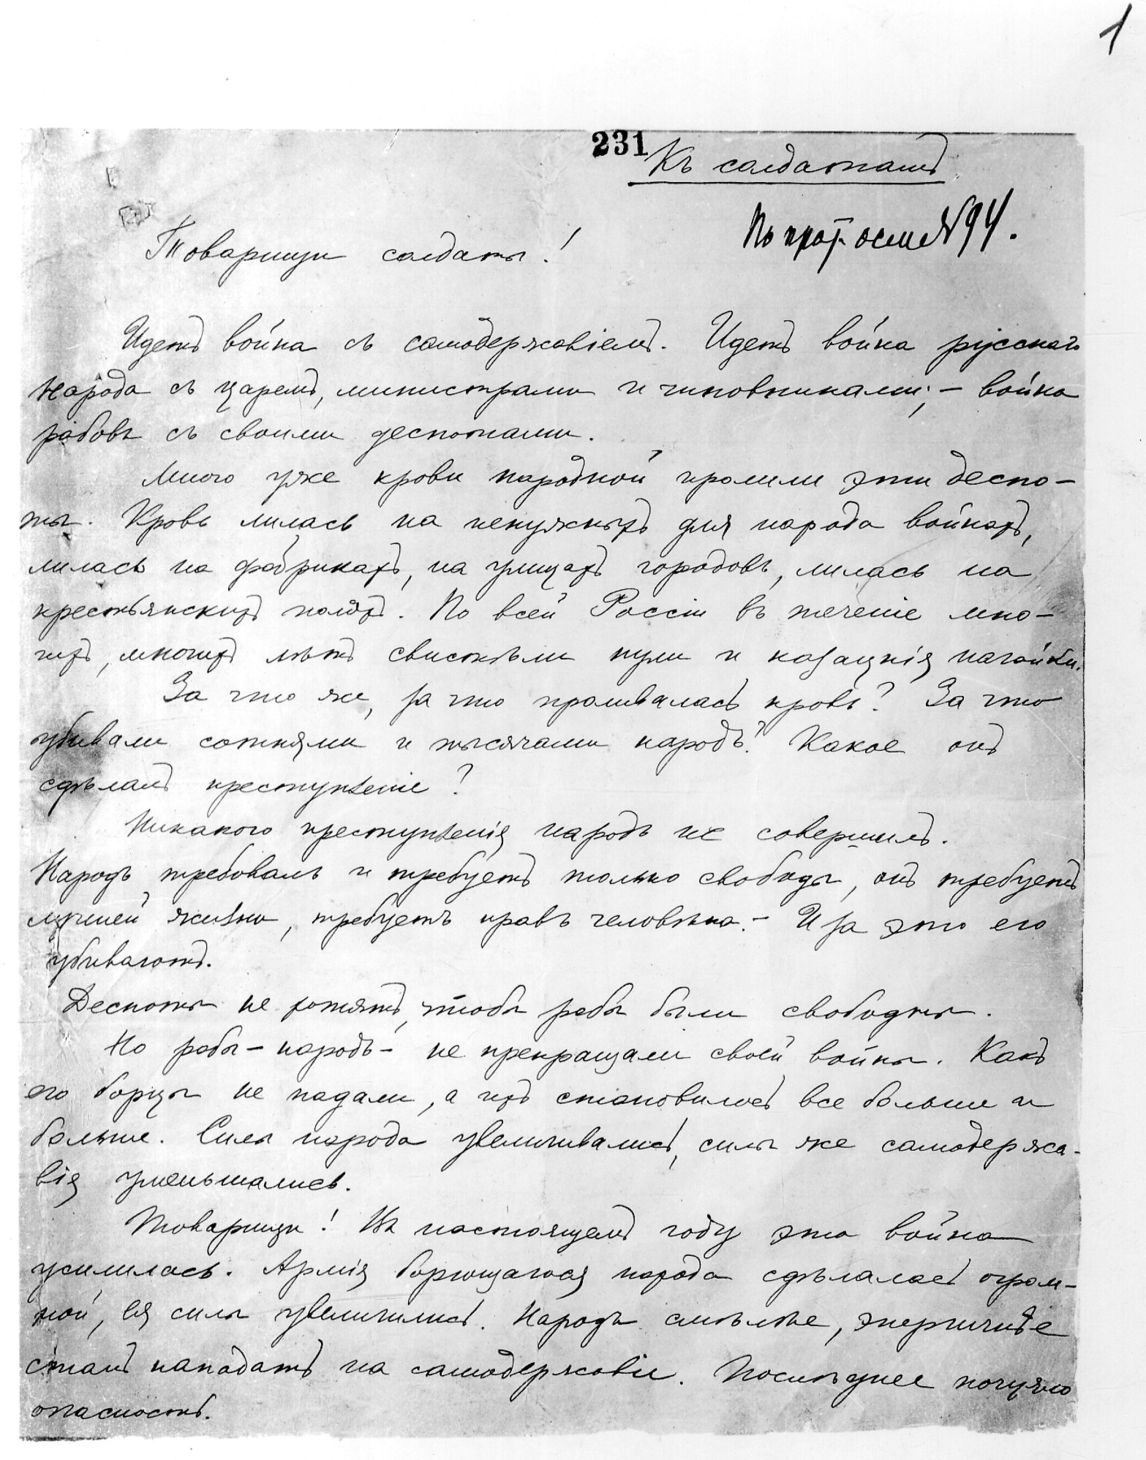 1
231
Къ солдатамъ
№ 94.
Товарищи солдаты!
Идетъ война съ самодержавіемъ. Идетъ война русскаго
народа съ царемъ, министрами и чиновниками; – война
рабовъ съ своими деспотами.
Много уже крови народной пролили эти деспо-
ты. Кровь лилась на ненужныхъ для народа войнахъ,
лилась на фабрикахъ, на улицахъ городовъ, лилась на
крестьянскихъ поляхъ. По всей Россіи въ теченіе мно-
гихъ, многихъ лѣтъ свистѣли пули и казацкія нагайки.
За что же, за что проливалась кровь? За что
убивали сотнями и тысячами народъ? Какое онъ
сдѣлалъ преступленіе?
Никакого преступленія народъ не совершилъ.
Народъ требовалъ и требуетъ только свободы, онъ требуетъ
лучшей жизни, требуетъ правъ человѣка. – И за это его
убиваютъ.
Деспоты не хотятъ, чтобы рабы были свободны.
Но рабы – народъ – не прекращали своей войны. Какъ
его борцы не падали, а ихъ становилось все больше и
больше. Силы народа увеличивались, силы же самодержа-
вія уменьшались.
Товарищи! Въ настоящемъ году эта война
усилилась. Армія борющагося народа сдѣлалась огром-
ной, ея силы увеличились. Народъ смѣлѣе, энергичнѣе
сталъ нападать на самодержавіе. Послѣднее почуяло
опасность.